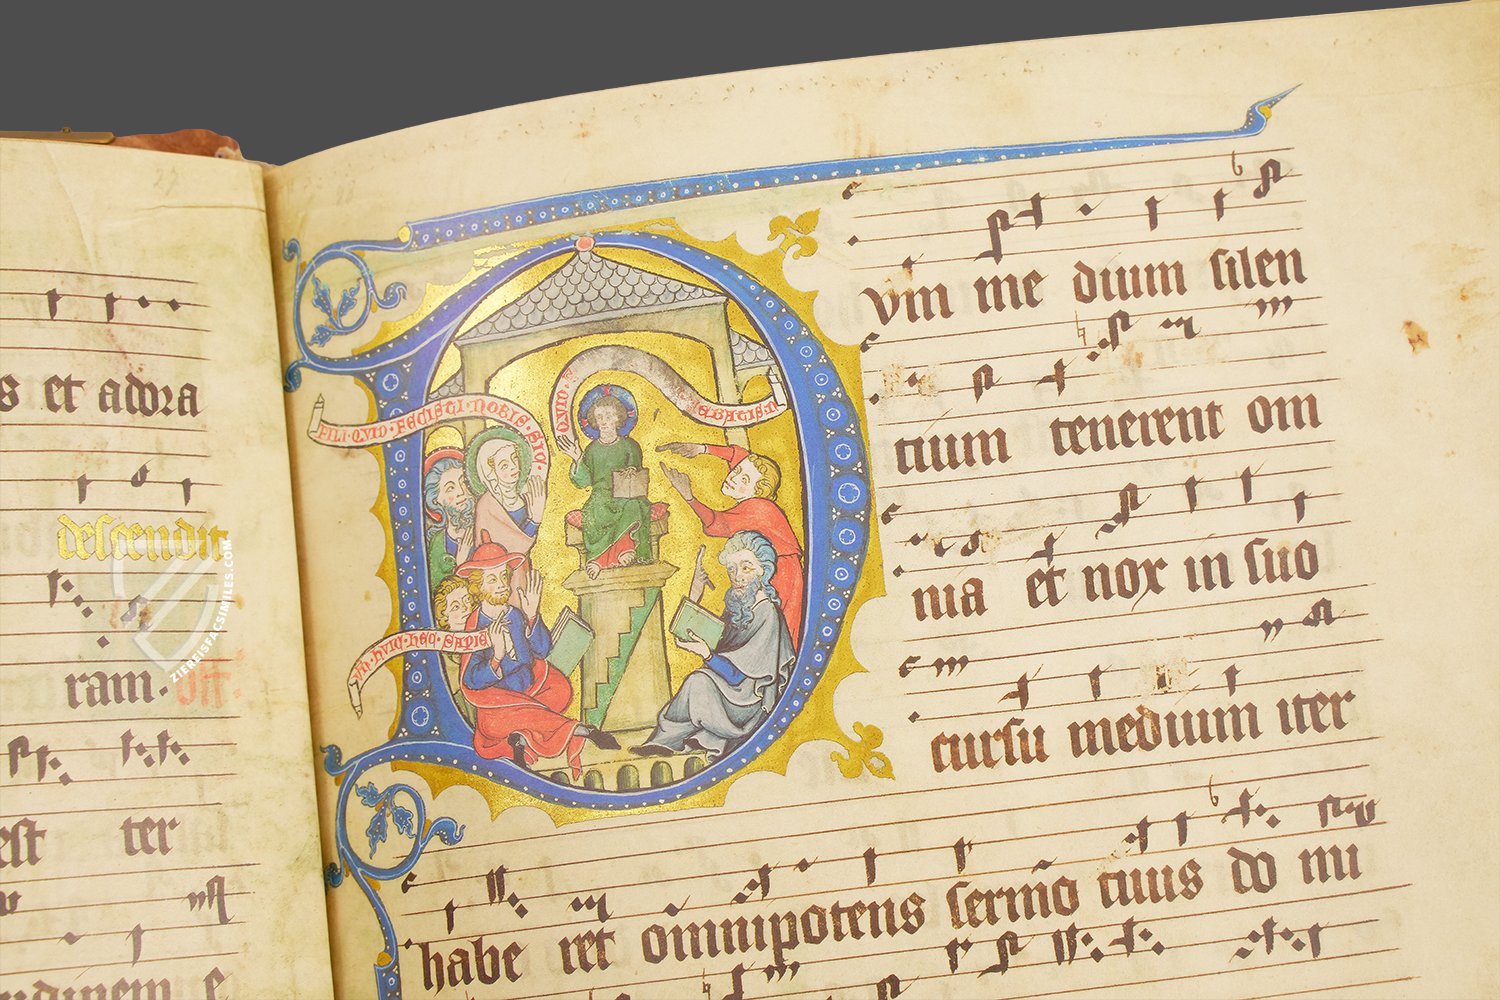 27
s et adora
descendit
ram. off:
est ter
ZIEREISFACSIMILES.COM
FILI·QVID·FECISTI·NOBIS·SIC·
QVID·
EBATIS·
HVIC·HEC·SAPIE
vm me dium silen
tium tenerent om
nia et nox in suo
cursu medium iter
habe ret omnipotens sermo tuus do mi